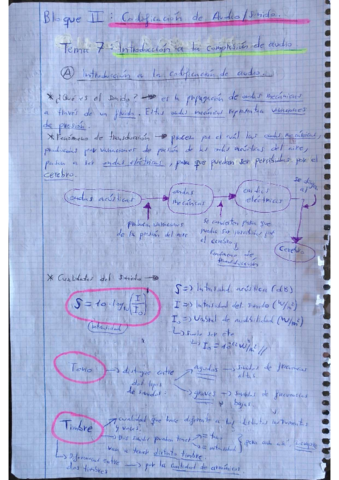 Bloque II: Codificación de Audio/Vídeo.
Tema 7: Introducción a la compresión de audio
A Introducción a la codificación de audio.
* ¿Qué es el Sonido? → es la propagación de ondas mecánicas
a través de un fluido. Estas ondas mecánicas representan variaciones
de presión.
* Fenómeno de transducción → proceso por el cuál las ondas mecánicas,
producidas por variaciones de presión de las ondas acústicas del aire,
pasan a ser ondas eléctricas, para que puedan ser percibidas por el
cerebro.
ondas acústicas → ondas mecánicas → ondas eléctricas
se dirige al
producen variaciones
de la presión del aire
se transforma para que
pueda ser
por
el cerebro
Fenómeno de transducción
cerebro
* Cualidades del Sonido →
S = 10 log10 (I/I0)
intensidad
S => Intensidad acústica (dB)
I => Intensidad del sonido (W/m²)
I0 => Umbral de audibilidad (W/m²)
Tono → distingue entre
del tipo
de sonido
agudos → sonidos de frecuencias
altas
graves → sonidos de frecuencias
bajas
Timbre → cualidad que hace diferente a los distintos instrumentos
y voces
→ Dos voces pueden tener = tono
= intensidad
tener distinto timbre
→ diferencias entre
los timbres
→ por la cantidad de armónicos